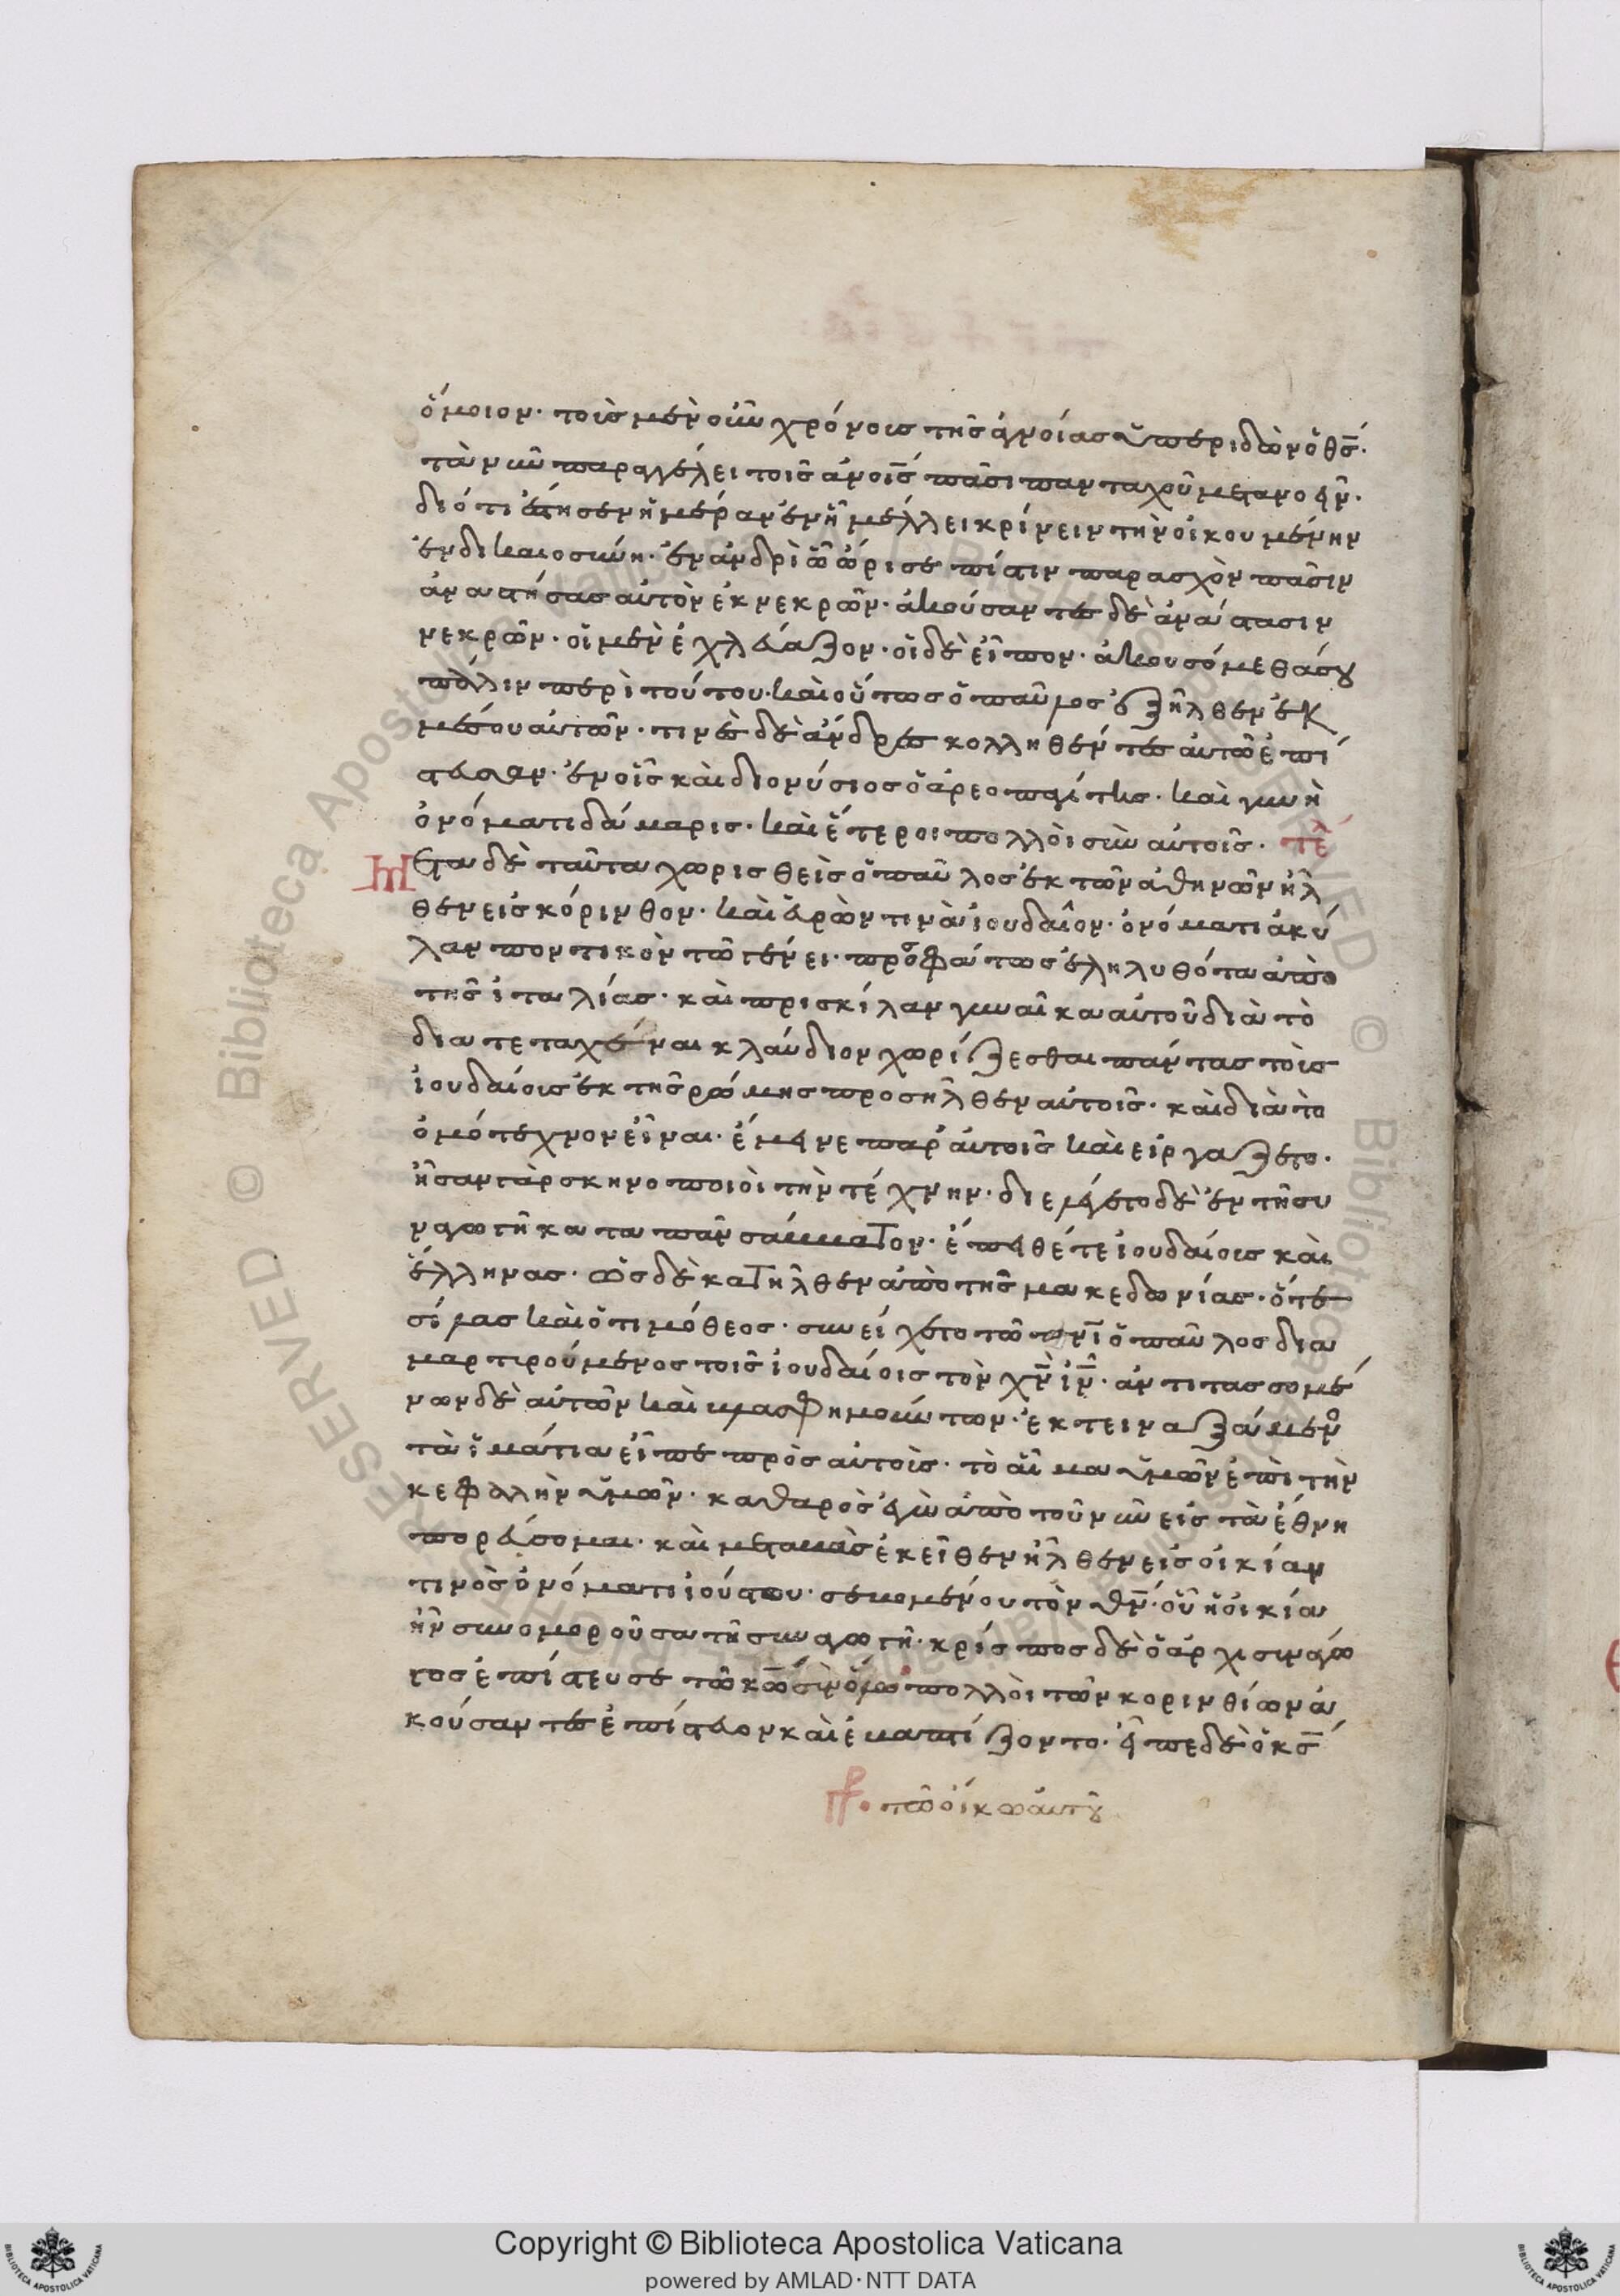 ὅμοιον· τοὺς μὲν οὖν χρόνους τῆς ἀγνοίας ὑπεριδὼν ὁ θς·
τὰ νῦν παραγγέλει τοῖς ἀνοις πᾶσι πανταχοῦ μετανοεῖν·
διότι ἔστησεν ἡμέραν ἐν ἧ μέλλει κρίνειν τὴν οἰκουμένην
ἐν δικαιοσύνη· ἐν ἀνδρὶ ὧ ὥρισε πίστιν παρασχὼν πᾶσιν
ἀναστήσας αὐτὸν ἐκ νεκρῶν· ἀκούσαντες δὲ ἀνάστασιν
νεκρῶν· οἱ μὲν ἐχλεύαζον· οἱ δὲ εἶπον· ἀκουσόμεθά σου
πάλιν περὶ τούτου· καὶ οὕτως ὁ παῦλος ἐξῆλθεν ἐκ
μέσου αὐτῶν· τινὲς δὲ ἄνδρες κολληθέντες αὐτῶ ἐπί
στευσαν· ἐν οἷς καὶ διονύσιος ὁ ἀρεοπαγίτης· καὶ γυνὴ
ὀνόματι δάμαρις· καὶ ἕτεροι πολλοὶ σὺν αὐτοῖς· τε
Μετα δὲ ταῦτα χωρισθεὶς ὁ παῦλος ἐκ τῶν ἀθηνῶν ἦλ
θεν εἰς κόρινθον· καὶ εὑρὼν τινὰ ἰουδαῖον· ὀνόματι ἀκύ
λαν ποντικὸν τῶ γένει· προσφάτως ἐληλυθότα ἀπὸ
τῆς ἰταλίας· καὶ πρισκίλαν γυναῖκα αὐτοῦ διὰ τὸ
διατεταχέναι κλαύδιον χωρίζεσθαι πάντας τοὺς
ἰουδαίους ἐκ τῆς ρώμης προσῆλθεν αὐτοῖς· καὶ διὰ τὸ
ὁμότεχνον εἶναι· ἔμεινε παρ' αὐτοῖς καὶ εἰργάζετο·
ἦσαν γὰρ σκηνοποιοὶ τὴν τέχνην· διελέγετο δὲ ἐν τῆ συ
ναγωγῆ κατα πᾶν σάββατον· ἔπειθέ τε ἰουδαίους καὶ
ἕλληνας· ὡς δὲ κατῆλθεν ἀπὸ τῆς μακεδωνίας· ὅ τε
σίλας καὶ ὁ τιμόθεος· συνείχετο τῶ πνι ὁ παῦλος δια
μαρτιρούμενος τοῖς ἰουδαίοις τὸν χν ιν· ἀντιτασσομέ
νων δὲ αὐτῶν καὶ βλασφημούντων· ἐκτειναξάμενο
τὰ ἱμάτια εἶπε πρὸς αὐτούς· τὸ αἷμα ὑμῶν ἐπὶ τὴν
κεφαλὴν ὑμῶν· καθαρὸς ἐγὼ ἀπὸ τοῦ νῦν εἰς τὰ ἔθνη
πορεύσομαι· καὶ μεταβὰς ἐκεῖθεν ἦλθεν εἰς οἰκίαν
τινὸς ὀνόματι ἰούστου· σεβομένου τὸν θν· οὗ ἡ οἰκία
ἦν συνομοροῦσα τῆ συναγωγῆ· κρίσπος δὲ ὁ ἀρχισιναγώ
γος ἐπίστευσε τῶ κω σὺν ὅλω πολλοὶ τῶν κορινθίων ἀ
κούσαντες ἐπίστευον καὶ ἐβαπτίζοντο· εἶπε δὲ ὁ κς
τῶ οἴκω αὐτοῦ